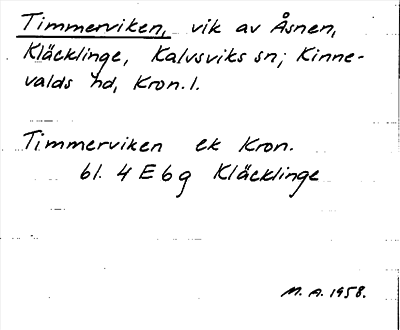 Timmerviken, vik av Åsnen,
Kläcklinge, Kalvsviks sn; Kinne-
valds hd, Kron. l.
Timmerviken ek Kron.
bl. 4 E 6 g Kläcklinge
M. A. 1958.